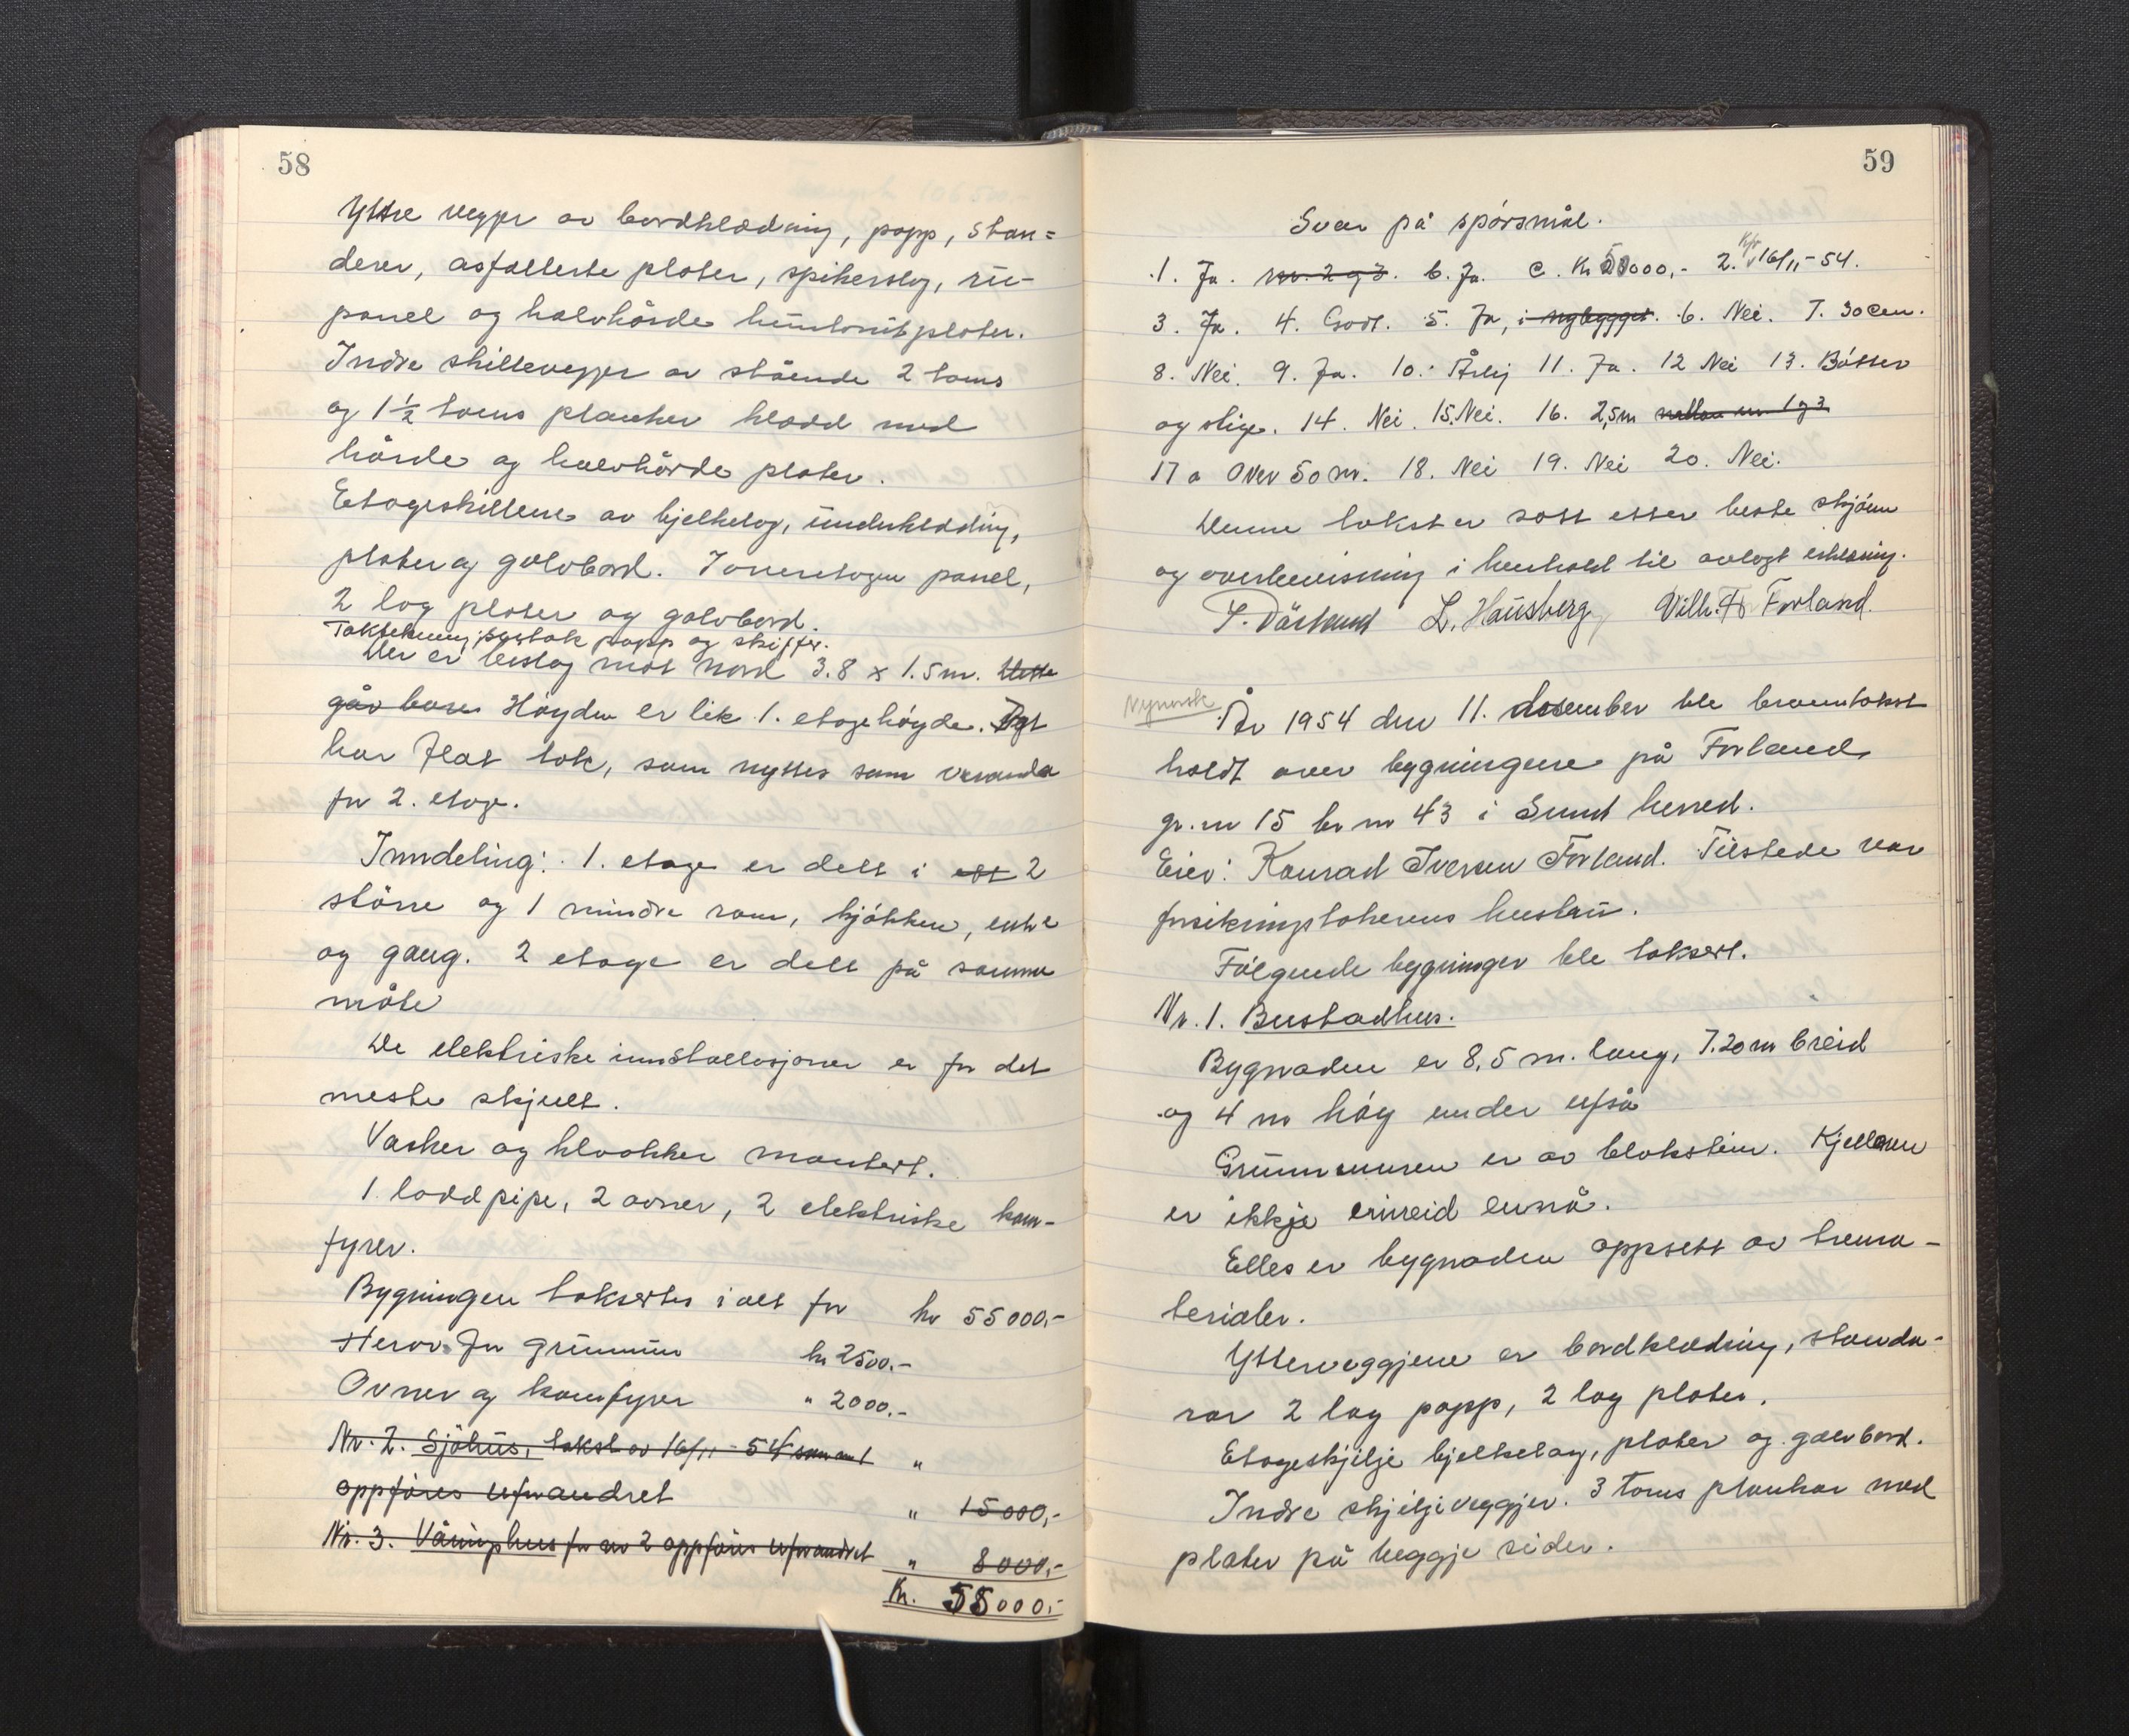 58
Yttre vegger av bordklædning, papp, stan=
derer, asfallerte plater, spikerslag, ru-
panel og halvhårde huntonitplater.
Indre skillevegger av stående 2 toms
og 1 1/2 toms planker kledd med
hårde og halvhårde plater.
Etageskillene av bjelkelag, underkledding,
plater og golvbord. I øverstetagen panel,
2 lag plater og golvbord.
Taktekning: papp og skiffer.
Der er beslag mot nord 3.8 x 1.5 m. Dette
går bare Høyden er lik 1. etagehøgde. Det
har flat tak, som nyttes som veranda
for 2. etage.
Inndeling: 1. etage er delt i ett 2
større og 1 mindre rom, kjøkken, entre
og gang. 2 etage er delt på samme
måte
De elektriske innstallasjoner er for det
meste skjult.
Vasker og kloakker montert.
1 loddpipe, 2 ovner, 2 elektriske kom-
fyrer.
Bygningen takseres i alt for kr 55000,-
Herav for grunnmur kr 2500.-
Ovner og komfyrer " 2000.-
Nr. 2. Sjøhus, takst av 16/11-54 samt "
oppføres uforandret " 15000,-
Nr. 3. Våningshus for nr 2 oppføres uforandret " 8000,-
Kr. 55000,-
59
Svar på spørsmål.
1. Ja. nr. 2 og 3. b. Ja. c. Kr 50000,- 2. Kfr 16/11-54.
3. Ja. 4. Godt. 5. Ja, i nybygget. 6. Nei. 7. 30 cm.
8. Nei. 9. Ja. 10. Årlig 11. Ja. 12 Nei 13. Bøtter
og stige. 14. Nei. 15. Nei. 16. 2,5m mellom nr. 1 og 3
17 a Over 50 m. 18. Nei 19. Nei 20. Nei.
Denne takst er satt etter beste skjønn
og overbevisning i henhold til avlagt erklæring.
L. Hausberg Vilh. H Forland.
Nynorsk
År 1954 den 11. desember ble branntakst
holdt over bygningene på Forland,
gr. nr 15 br nr 43 i Sund herred.
Eier: Konrad Iversen Forland. Tilstede var
forsikringstakerens hustru.
Følgende bygninger ble taksert.
Nr. 1. Bustadhus.
Bygnaden er 8,5 m. lang, 7.20 m breid
og 4 m høg under ufså
Grunnmuren er av blokstein. Kjellaren
er ikkje innreid ennå.
Elles er bygnaden oppsett av trema-
terialer.
Ytterveggjene er bordklædning, standa-
rar 2 lag papp, 2 lag plater.
Etageskjilje bjelkelag, plater og golvbord.
Indre skjiljeveggjer. 3 toms plankar med
plater på beggje sider.